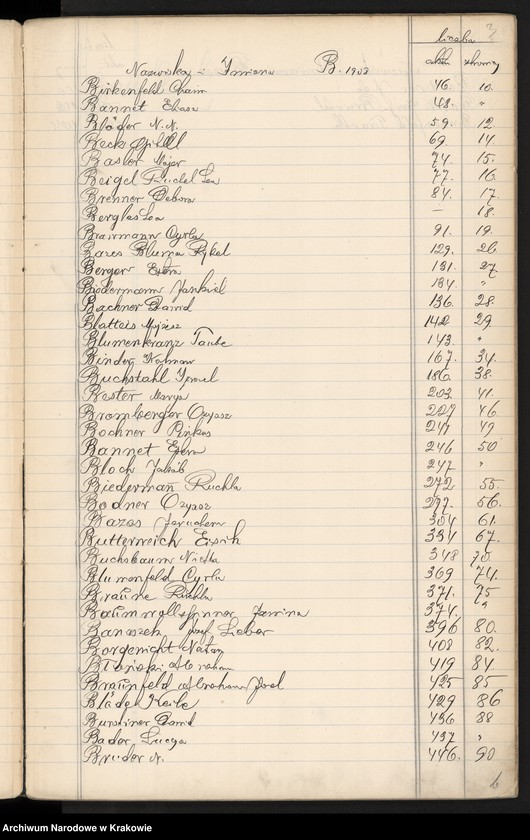 liczba
Nazwiska i Imiona B. 1903 aktu strony
Birkenfeld Chaim 46. 10.
Bannet Eliasz 48. "
Bläder N.N. 59. 12
Beck Gittel 69. 14.
Baslor Majer 74. 15.
Beigel Freudel Lea 77. 16.
Brenner Debora 84. 17.
Bergles Lea – 18.
Braumann Cyrla 91. 19.
Bazes Bluma Rykel 129. 26.
Berger Efen 131. 27.
Biedermann Jankiel 134. "
Bachner Dawid 136. 28.
Blatteis Mojżesz 142. 29.
Blumenkranz Taube 143. "
Binder Kalman 167. 34.
Buchstahl Israel 186. 38.
Bester Marya 203. 41.
Bromberger Ozyasz 227 46
Bochner Pinkas 241 49
Bannet Efen 246 50
Bloch Jakób 247. "
Biederman Ruchla 272. 55.
Bodner Ozyasz 277. 56.
Bazes 304 61.
Butterweich Ersih 334 67.
Buchsbaum 348 70.
Blumenfeld Cyrla 369 74.
Braune Ruchla 371. 75
Baumwollspinner Janina 374. "
Josef Lieber 396 80.
Borgenicht Natan 408 82.
Abraham 419 84.
Braunfeld Abraham Joel 425 85
Bläde Keile 429 86
Dawid 436 88
Bader Lucya 437 "
Bruder N. 446. 90
Archiwum Narodowe w Krakowie